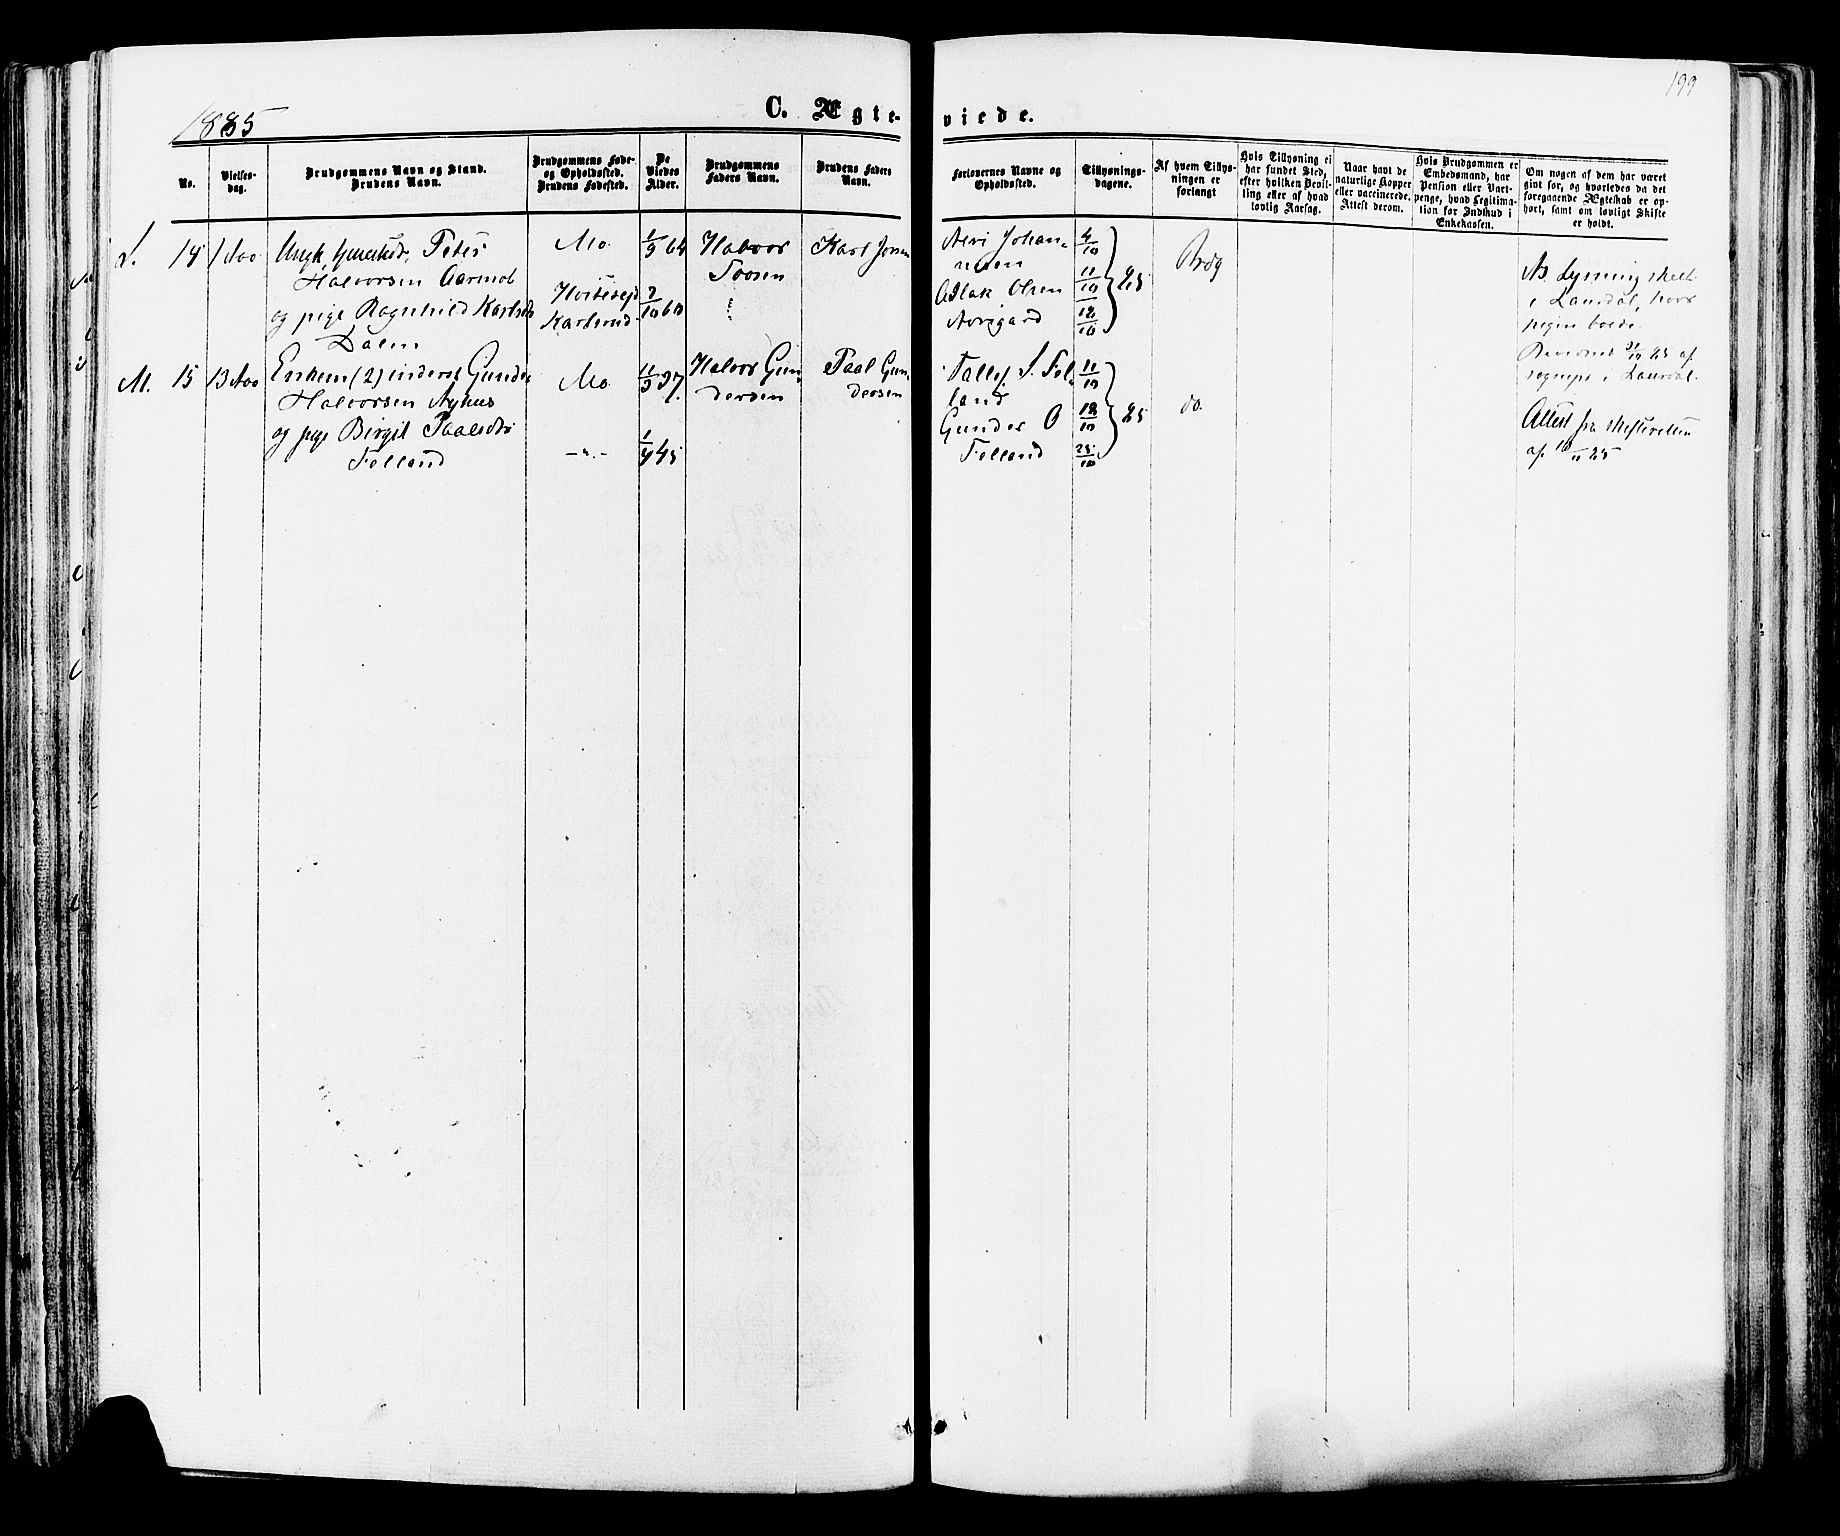 199
1885
C. Ægte-
viede.
No.
Vielses-
dag.
Brudgommens Navn og Stand.
Brudens Navn.
Brudgommens Føde-
og Opholdssted.
Brudens Fødested.
De
Viedes
Alder.
Brudgommens
Faders Navn.
Brudens Faders
Navn.
Forlovernes Navne og
Opholdssted.
Tillysnings-
dagene.
Af hvem Tillys-
ningen er
forlangt
Hvis Tillysning ei
har fundet Sted,
efter hvilken Bevil-
ling eller af hvad
lovlig Aarsag.
Naar havt de
naturlige Kopper
eller vaccinerede.
Attest derom.
Hvis Brudgommen er
Embedsmand, har
Pension eller Vart-
penge, hvad Legitima-
tion for Indskud i
Enkekassen.
Om nogen af dem har været
givt før, og hvorledes da det
foregaaende Ægteskab er op-
hørt, samt om lovligt Skifte
er holdt.
L. 14 1 Nov
Ungk. Peter
Halvorsen Aarmot
og pige Ragnhild Karlsd.
Dalen
Mo.
Hvitesejd
1/9 64
7/10 60
Halvor
Karl
Johan-
nesen
Aslak Olsen
4/10
11/10
18/10
85
Brdg
NB Lysning skeet
i Laurdal, hvor
pigen boede.
85 af
sognepr i Laurdal.
M. 15 13 Nov
Enkem (2) inderst Gunder
Halvorsen Nyhus
og pige Birgit Paalsdtr
Felland
Mo
—"—
11/5 37.
1/4 45
Halvor Gun
dersen
Paal Gun-
dersen
Fel-
land
Gunder O
Felland
11/10
18/10
25/10
85
do.
Attest fra skifteretten
af 10/11 85